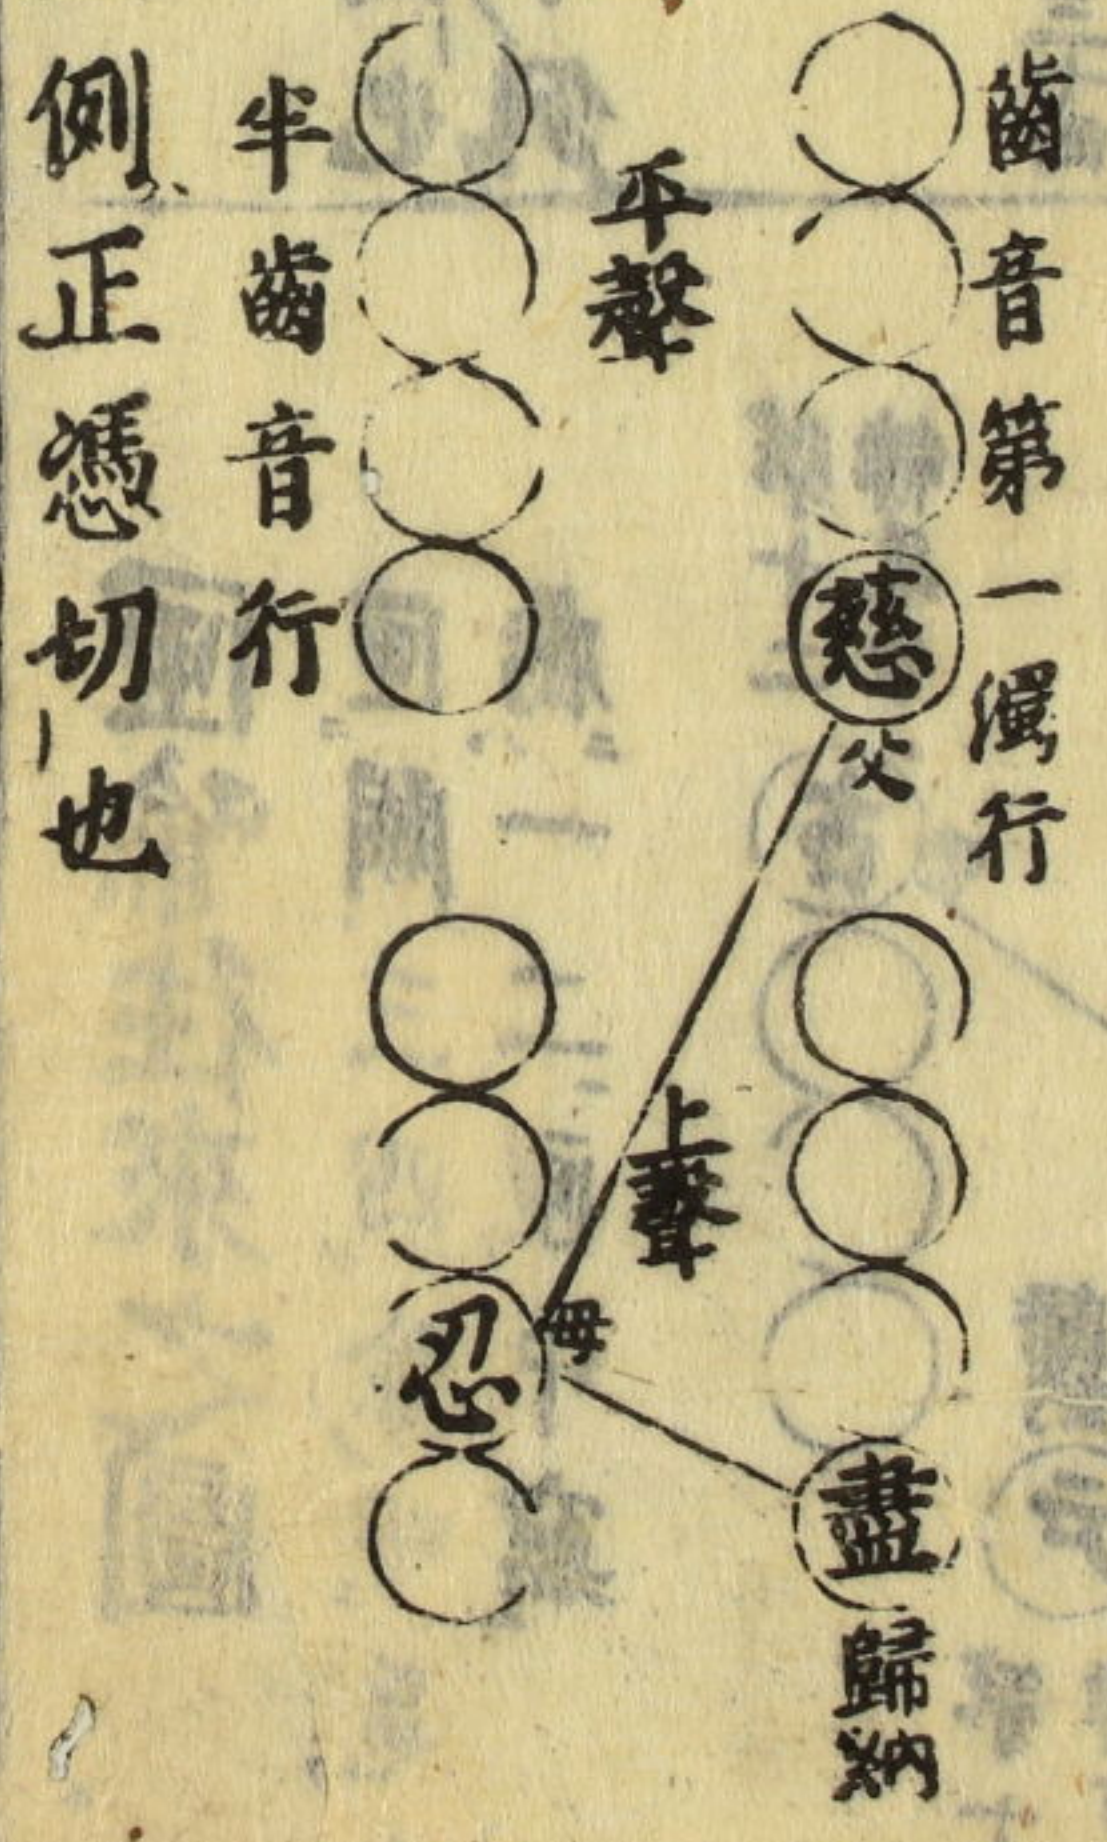 齒音第一濁行
慈
父
盡
歸納
平聲
上聲
母
忍
半齒音行
例正憑切也